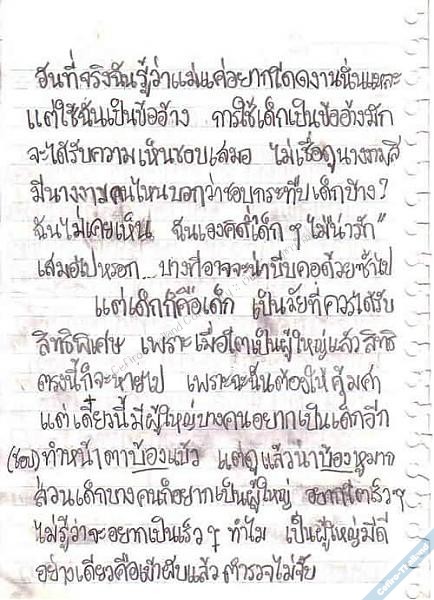 อันที่จริงฉันรู้ว่าแม่แค่อยากโดดงานนั่นแหละ
แต่ใช้ฉันเป็นข้ออ้าง การใช้เด็กเป็นข้ออ้างมัก
จะได้รับความเห็นชอบเสมอ ไม่เชื่อดูนางงามสิ
มีนางงามคนไหนบอกว่าชอบกระทืบเด็กบ้าง?
ฉันไม่เคยเห็น ฉันเองคิดว่าเด็ก ๆ ไม่น่ารัก"
เสมอไปหรอก... บางทีอาจจะน่าบีบคอด้วยซ้ำไป
แต่เด็กก็คือเด็ก เป็นวัยที่ควรได้รับ
สิทธิพิเศษ เพราะเมื่อโตเป็นผู้ใหญ่แล้วสิทธิ
ตรงนี้ก็จะหายไป เพราะฉะนั้นต้องให้คุ้มค่า
แต่เดี๋ยวนี้มีผู้ใหญ่บางคนอยากเป็นเด็กอีก
(ชอบ) ทำหน้าตาบ้องแบ๊ว แต่ดูแล้วน่าบ้องหูมาก
ส่วนเด็กบางคนก็อยากเป็นผู้ใหญ่ อยากโตเร็วๆ
ไม่รู้ว่าจะอยากเป็นเร็ว ๆ ทำไม เป็นผู้ใหญ่มีดี
อย่างเดียวคือเข้าผับแล้วตำรวจไม่จับ